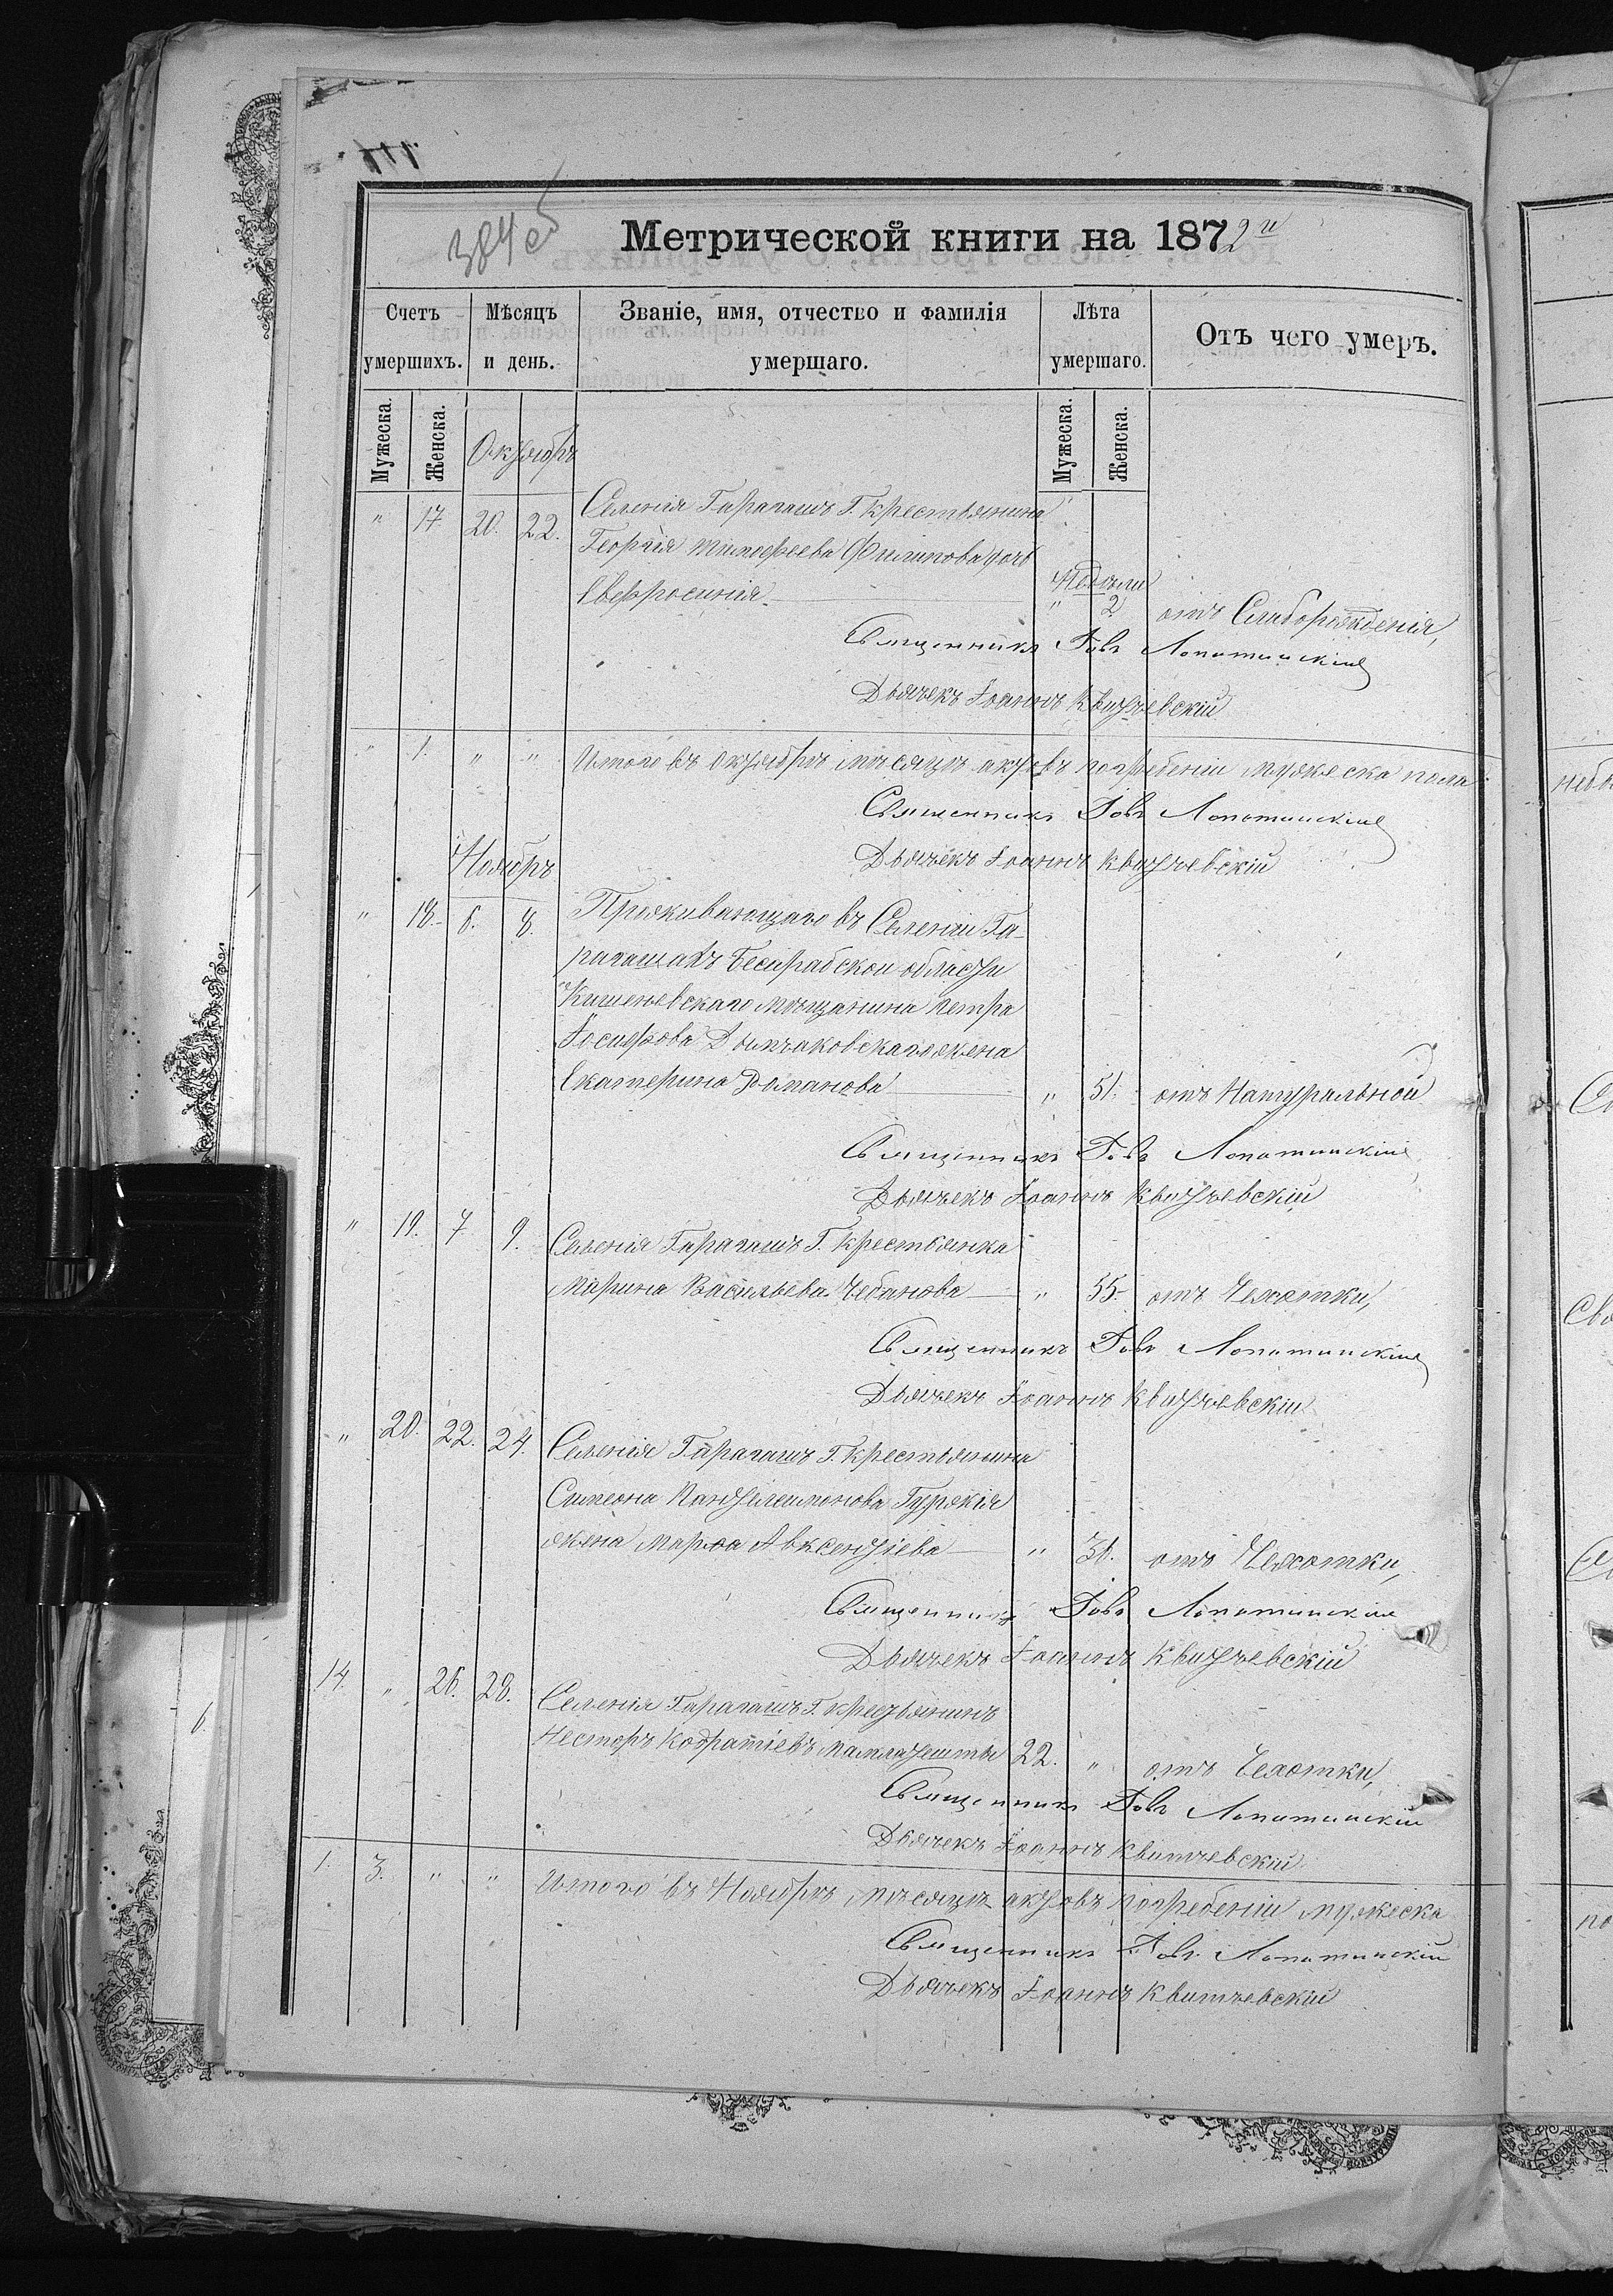 384 об
Метрической книги на 1872й
Счетъ умершихъ.
Мѣсяцъ и день.
Званіе, имя, отчество и фамилія умершаго.
Лѣта умершаго.
Отъ чего умеръ.
Мужеска. Женска.
Мужеска. Женска.
Октябрь
" 17 20. 22. Селенія Гарагашъ Г. крестьянина
Георгія Тимофеева Филипова дочь
Недѣли
Евфросинія " 2 отъ Слаборожденія,
Священникъ Іовъ Лопатинскій
Дьячекъ Іоаннъ Квитчевскій
" 1. " " Итого въ Октябрѣ мѣсяцѣ актовъ погребеніи мужеска пола
Священникъ Іовъ Лопатинскій
Дьячекъ Іоаннъ Квитчевскій
Ноябрь
" 18. 6. 8. Проживающаго въ Селеніи Га-
рагашахъ Бесарабской области
Кишеневскаго мѣщанина Петра
Іосифова жена
Екатерина Романова " 51. отъ Натуральной
Священникъ Іовъ Лопатинскій
Дьячекъ Іоаннъ Квитчевскій
" 19. 7 9. Селенія Гарагашъ Г. Крестьянка
Марина Васильева Чебанова " 55. отъ Чехотки,
Священникъ Іовъ Лопатинскій
Дьячекъ Іоаннъ Квитчевскій
" 20. 22. 24. Селенія Гарагашъ Г. крестьянина
Симеона Пантелеимонова Гуржія
жена Марѳа Авксентіева " 31. отъ Чехотки,
Священникъ Іовъ Лопатинскій
Дьячекъ Іоаннъ Квитчевскій
14. " 26. 28. Селенія Гарагашъ Г. крестьянинъ
Несторъ Кодратіевъ 22. " отъ Чехотки,
Священникъ Іовъ Лопатинскій
Дьячекъ Іоаннъ Квитчевскій
1. 3. " " Итого въ Ноябрѣ мѣсяцѣ актовъ погребеніи мужеска
Священникъ Іовъ Лопатинскій
Дьячекъ Іоаннъ Квитчевскій